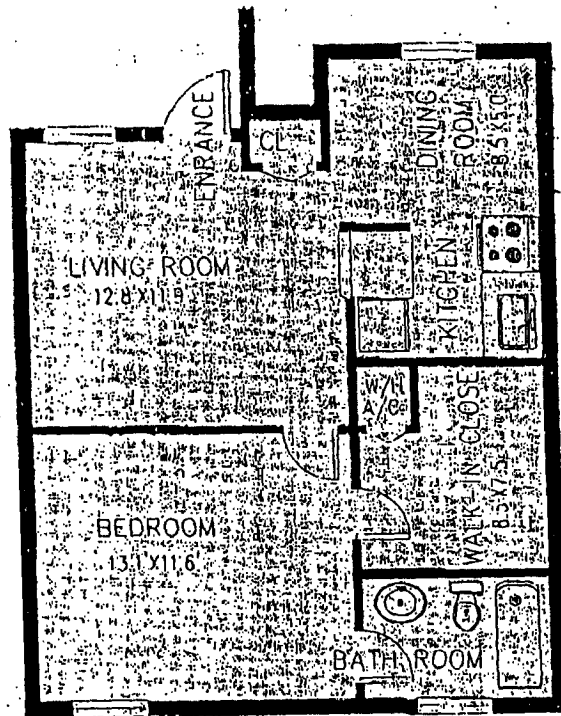 ENRANCE
CL
DINING
ROOM
8.5 X 5.0
LIVING ROOM
12.8 X 11.9
KITCHEN
W/H
A/C
WALK-IN CLOSE
8.5 X 7.5
BEDROOM
13.1 X 11.6
BATH ROOM